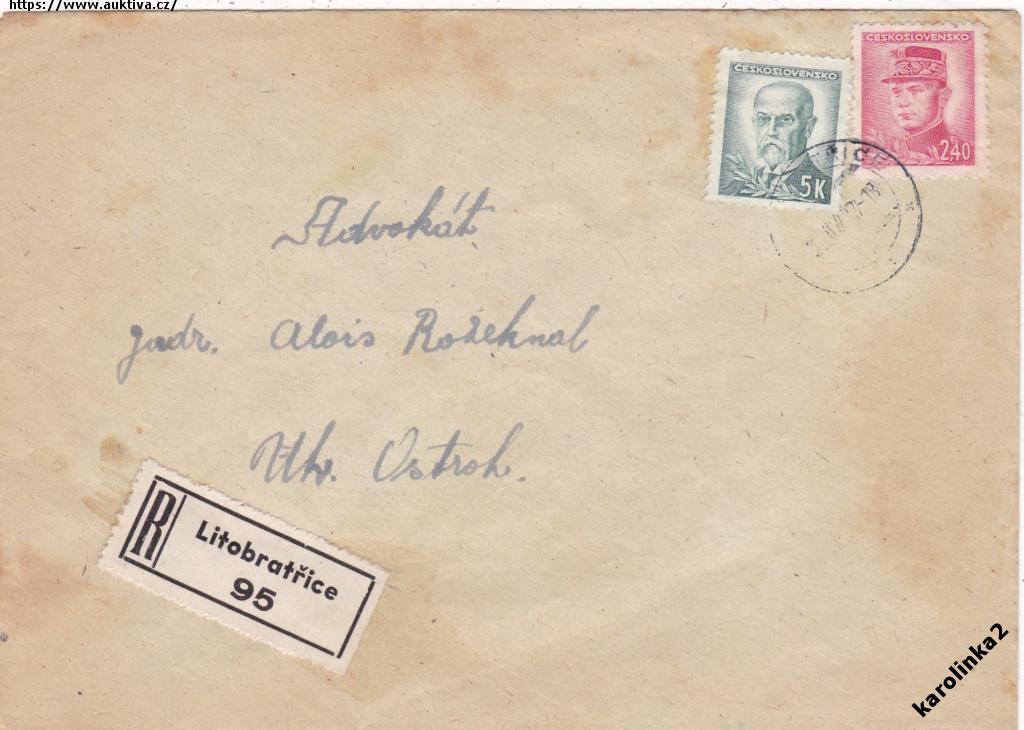 https://www.auktiva.cz/
ČESKOSLOVENSKO
5K
ČESKOSLOVENSKO
2,40
Advokát
judr. Alois Rožehnal
Uh. Ostroh.
R
Litobratřice
95
karolinka2